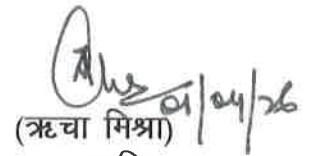 01/04/26
(ऋचा मिश्रा)